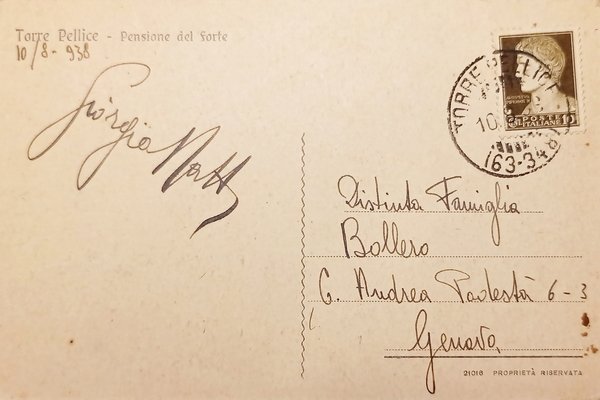 Torre Pellice - Pensione del Forte
10/8-938
Giorgio
Distinta Famiglia
Bollero
C. Andrea Podestà 6-3
Genova
21016 PROPRIETÀ RISERVATA
TORRE PELLICE
10.8
(63-348)
POSTE
ITALIANE 10